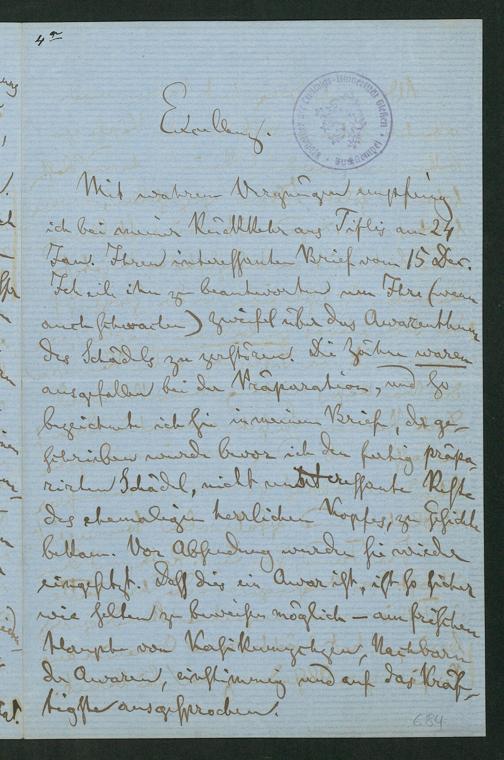 4a
Excellenz.
Mit wahrem Vergnügen empfing
ich bei meiner Rückkehr aus Tiflis am 24
Jan. Ihren interessanten Brief vom 15 Dec.
Ich eile ihn zu beantworten um Ihre (wenn
auch schwachen) Zweifel über das Awarenthum
des Schädels zu zerstören. Die Zähne waren
ausgefallen bei der Präparation, und so
bezeichnete ich sie in meinem Brief, der ge-
schrieben wurde bevor ich den fertig präpa-
rirten Schädel, nicht uninteressante Reste
des ehemaligen herrlichen Kopfes, zu Gesicht
bekam. Vor Absendung wurden sie wieder
eingesetzt. Daß dies ein Awar ist, ist so sicher
wie selten zu beweisen möglich – am frischen
Haupte von Kasikumychen, Nachbarn
der Awaren, einstimmig und auf das Kräf-
tigste ausgesprochen.
684